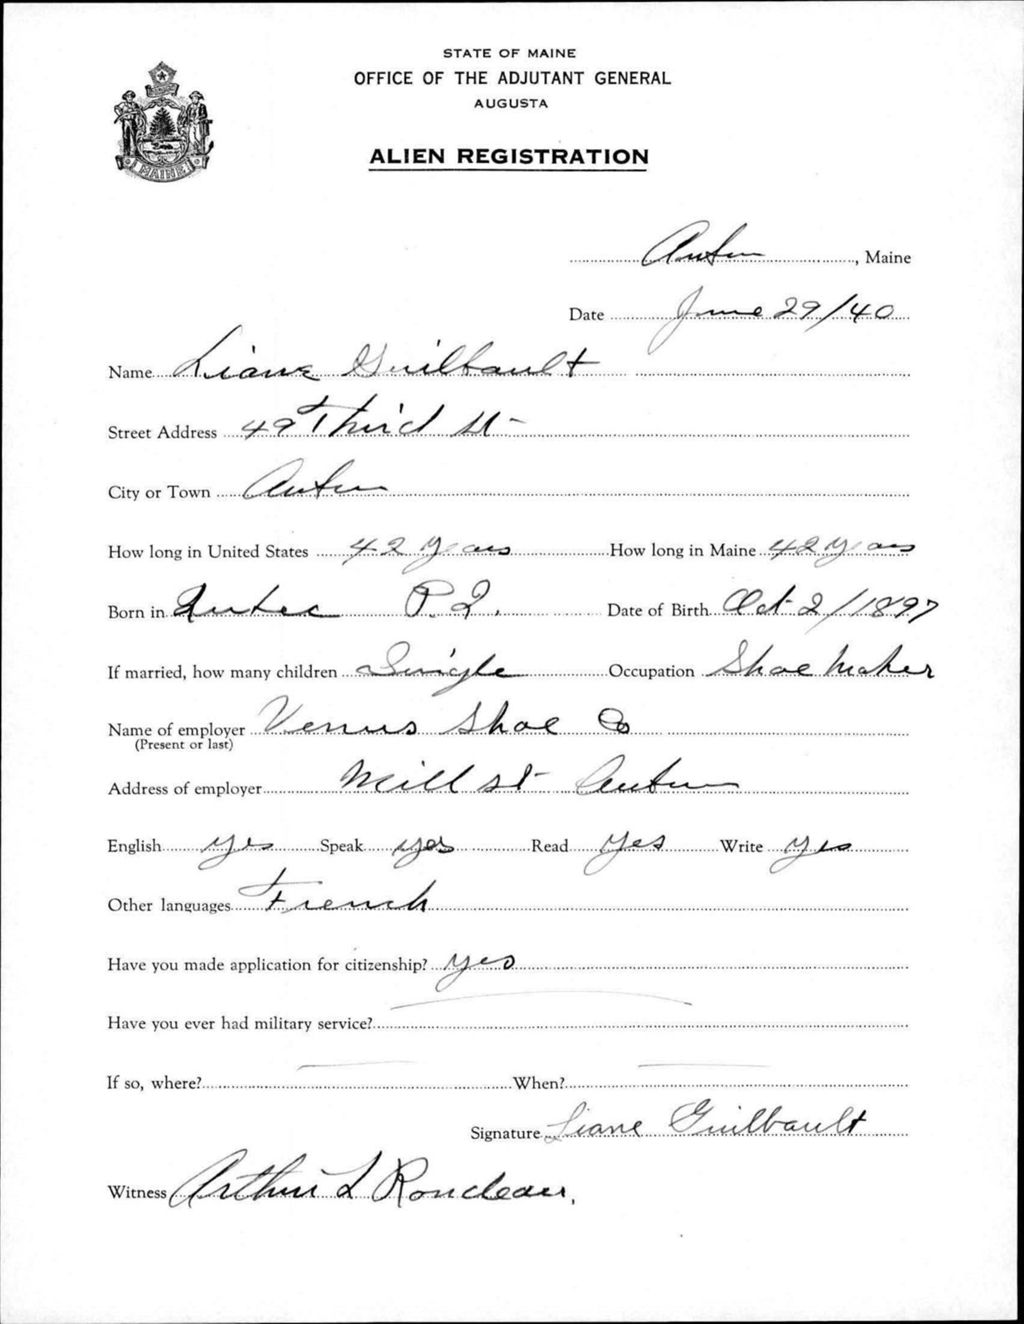 STATE OF MAINE
OFFICE OF THE ADJUTANT GENERAL
AUGUSTA
MAINE
ALIEN REGISTRATION
Auburn, Maine
Date June 29/40
Name Liane Guilbault
Street Address 49 Third St-
City or Town Auburn
How long in United States 42 years How long in Maine 42 years
Born in P.Q. Date of Birth Oct-2/1897
If married, how many children Single Occupation Shoe Maker
Name of employer Venus Shoe Co
(Present or last)
Address of employer Mill St- Auburn
English yes Speak yes Read yes Write yes
Other languages French
Have you made application for citizenship? yes
Have you ever had military service?
If so, where? When?
Signature Liane Guilbault
Witness Arthur L Rondeau,